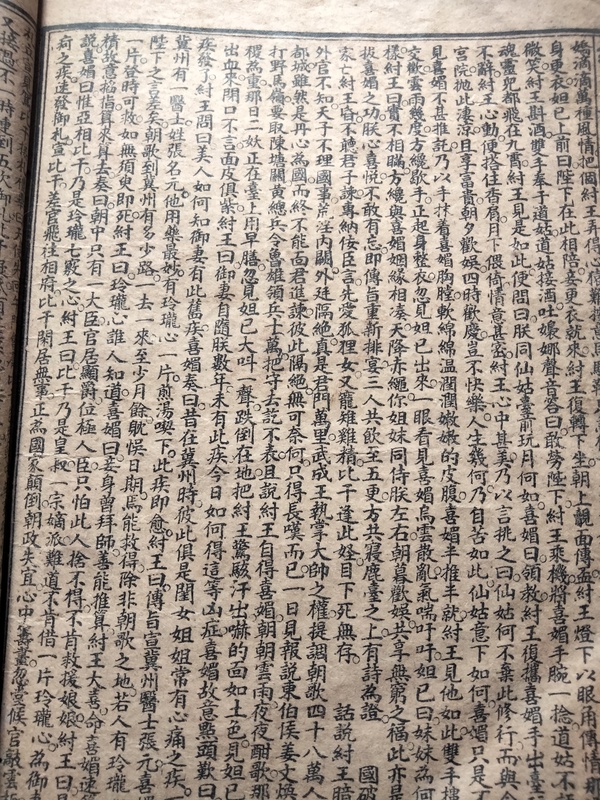 嬌滴滴萬種風情把個紂王弄得心癢難
身更衣妲已上前曰陛下在此相陪妾更衣就來紂王復轉下坐朝上覿面傳盃紂王燈下以眼用傳情那
微笑紂王斟酒雙手奉于道姑道姑接酒吐嬝娜聲音答曰敢勞陛下紂王乘機將喜媚手腕一捻道姑不
魂靈兒都飛在九霄紂王見是如此便問曰朕同仙姑臺前玩月何如喜媚曰領教紂王復攜喜媚手出臺
不辭紂王心動便搭住香肩月下偎倚情意甚密紂王心中甚美乃以言挑之曰仙姑何不棄此修行而與令
宮院拋此凄涼且享富貴朝夕歡娛四時歡慶豈不快樂人生幾何乃自苦如此仙姑意下如何喜媚只是不
見喜媚不甚推託乃以手抹着喜媚胸膛軟綿綿溫潤潤嫩嫩的皮腹喜媚半推半就紂王見他如此雙手摟
交歡雲雨幾度方纔歇手正起身整衣忽見妲已出來一眼看見喜媚烏雲散亂氣喘吁吁妲已曰妹妹為何
樣紂王曰實不相瞞方纔與喜媚姻緣相湊天降赤繩你姐妹同侍朕左右朝暮歡娛共享無窮之福此亦是
拔喜媚之功朕心喜悅不敢有忘即傳旨重新排宴三人共飲至五更方共寢鹿臺之上有詩為證 國破
家亡紂王昏不聽君子諫專納佞臣言先愛狐狸女又寵雉雞精比干逢此妖目下死無存 話說紂王暗
外官不知天子不理國事荒淫內闕外廷隔絕真是君門萬里武成王執掌大帥之權提調朝歌四十八萬人
都城雖然是丹心為國而終不能面君進諫彼此隔絕無可奈何只得長嘆而已一日見報說東伯侯姜文煥
打野馬嶺要取陳塘關黃總兵令魯雄領兵十萬把守去訖不表且說紂王自得喜媚朝朝雲雨夜夜酣歌那
稷為重那日二妖正在臺上用早膳忽見妲已大叫一聲跌倒在地把紂王驚駭汗出嚇的面如土色見妲已
出血來閉口不言面皮俱紫紂王曰御妻自隨朕數年未有此疾今日如何得這等凶症喜媚故意點頭歎曰
疾發了紂王問曰美人如何知御妻有此舊疾喜媚奏曰昔在冀州時彼此俱是閨女姐姐常有心痛之疾一
冀州有一醫士姓張名元他用藥最妙有玲瓏心一片煎湯啜下此疾即愈紂王曰傳旨宣冀州醫士張元喜
陛下之言差矣朝歌到冀州有多少路一去一來至少月餘躭悞日期焉能救得除非朝歌之地若人有玲瓏
一片登時可救如無須臾即死紂王曰玲瓏心誰人知道喜媚曰妾身曾拜師善能推算紂王大喜命喜媚速
精故意掐指算來算去奏曰朝中只有一大臣官居顯爵位極人臣只怕此人捨不得不肯救援娘娘紂王曰是
說喜媚曰惟亞相比干乃是玲瓏七竅之心紂王曰比干乃是皇叔一宗嫡派難道不肯借一片玲瓏心為御
疴之疾速發御札宣比干差官飛往相府比干閑居無辜正為國家顛倒朝政失宜心中籌畫忽堂候官敲雲
又接過不一時連到五次御札比干